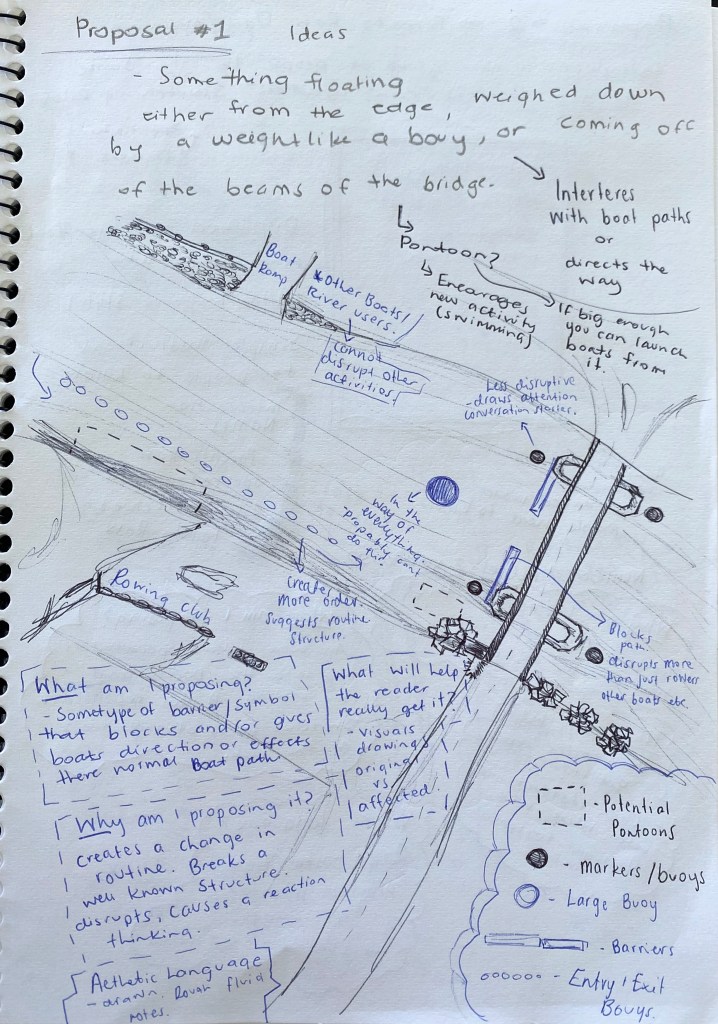 Proposal #1 Ideas
- Something floating
either from the edge, weighed down
by a weight like a bouy, or coming off
of the beams of the bridge.
Interferes
with boat paths
or
directs the
way
Pontoon?
Encarages
new activity
(swimming)
If big enough
you can launch
boats from
it.
Boat
Ramp
*Other Boats/
River users.
cannot
disrupt other
activities
Less disruptive
- draws attention
conversation starter.
In the
way of
everything.
propably cant
do this.
creates
more order.
Suggests routine
Structure.
Rowing club
Blocks
path.
disrupts more
than just rowers
other boats etc.
What am I proposing?
- Sometype of barrier/symbol
that blocks and/or gives
boats direction or effects
there normal Boat path
What will help
the reader
really get it?
- visuals
drawings
original
vs
affected.
Why am I proposing it?
creates a change in
routine. Breaks a
well known structure.
disrupts, causes a reaction
thinking.
Aethetic Language
- drawn, Rough fluid
notes.
- Potential
Pontoons
- markers/buoys
- Large Buoy
- Barriers
- Entry/Exit
Bouys.